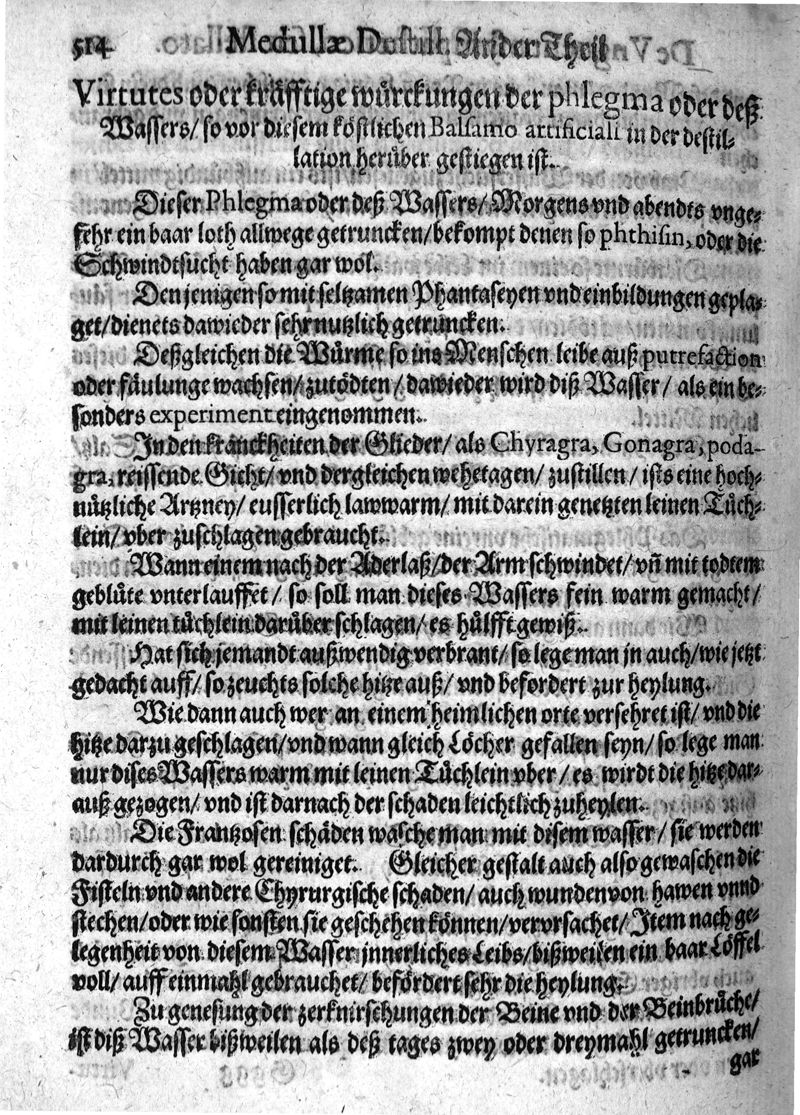 514 Medullæ Destill. Ander Theil
Virtutes oder kräfftige würckungen der phlegma oder deß
Wassers/ so vor diesem köstlichen Balsamo artificiali in der destil-
lation herüber gestiegen ist.
Dieser Phlegma oder deß Wassers/ Morgens vnd abendts vnge-
fehr ein baar loth allwege getruncken/ bekompt denen so phthisin, oder die
Schwindtsucht haben gar wol.
Den jenigen so mit seltzamen Phantaseyen vnd einbildungen gepla-
get/ dienets dawieder sehr nutzlich getruncken.
Deßgleichen die Würme so ins Menschen leibe auß putrefaction
oder fäulunge wachsen/ zutödten/ dawieder wird diß Wasser/ als ein be-
sonders experiment eingenommen.
In den kranckheiten der Glieder/ als Chyragra, Gonagra, poda-
gra, reissende Gicht/ vnd dergleichen wehetagen/ zustillen/ ists eine hoch-
nützliche Artzney/ eusserlich lawwarm/ mit darein genetzten leinen Tüch-
lein/ vber zuschlagen gebraucht.
Wann einem nach der Aderlaß/ der Arm schwindet/ vñ mit todtem
geblüte vnterlauffet/ so soll man dieses Wassers fein warm gemacht/
mit leinen tüchlein darüber schlagen/ es hülfft gewiß.
Hat sich jemandt außwendig verbrant/ so lege man jn auch/ wie jetzt
gedacht auff/ so zeuchts solche hitze auß/ vnd befordert zur heylung.
Wie dann auch wer an einem heimlichen orte versehret ist/ vnd die
hitze darzu geschlagen/ vnd wann gleich Löcher gefallen seyn/ so lege man
nur dises Wassers warm mit leinen Tüchlein vber/ es wirdt die hitze dar-
auß gezogen/ vnd ist darnach der schaden leichtlich zuheylen.
Die Frantzosen schäden wasche man mit disem wasser/ sie werden
dardurch gar wol gereiniget. Gleicher gestalt auch also gewaschen die
Fisteln vnd andere Chyrurgische schaden/ auch wunden von hawen vnnd
stechen/ oder wie sonsten sie geschehen können/ vervrsachet/ Item nach ge-
legenheit von diesem Wasser jnnerliches Leibs/ bißweilen ein baar Löffel
voll/ auff einmahl gebrauchet/ befördert sehr die heylung.
Zu genesung der zerknirschungen der Beine vnd der Beinbrüche/
ist diß Wasser bißweilen als deß tages zwey oder dreymahl getruncken/
gar